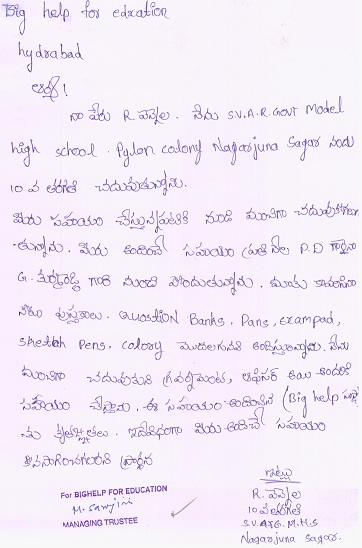 Big help for edxcation
hydrabad
ఆర్యా!
నా పేరు R. వెన్నెల. నేను S.V.A.R. Govt Model
high school. Pylon colony Nagarjuna Sagar నందు
10 వ తరగతి చదువుతున్నాను.
మీరు సహాయం చేస్తున్నప్పటికి నుండి మంచిగా చదువుకోగలుగు
తున్నాను. మీరు అందించే సహాయం ప్రతి నెల P.D గారైనా
G. గారి నుండి పొందుతున్నాను. మాకు కావలసిన
నోటు పుస్తకాలు. Quostion Banks. Pans, exampad,
sketch Pens, colory మొదలుగునవి అందిస్తున్నారు. నేను
మంచిగా చదువుకుని గవర్నమెంట్, ఆఫీసర్ అయి అందరికి
సహాయం చేస్తాను. ఈ సహాయం అందించిన (Big help
కు కృతజ్ఞతలు. ఇదేవిధంగా మీరు అందించే సహాయం
కొనసాగించగలరని ప్రార్థన
ఇట్లు
R. వెన్నెల
10 వ తరగతి
S.V.A.R.G.M.H.S
Nagarjuna Sagar.
For BIGHELP FOR EDUCATION
M. Sarojini
MANAGING TRUSTEE